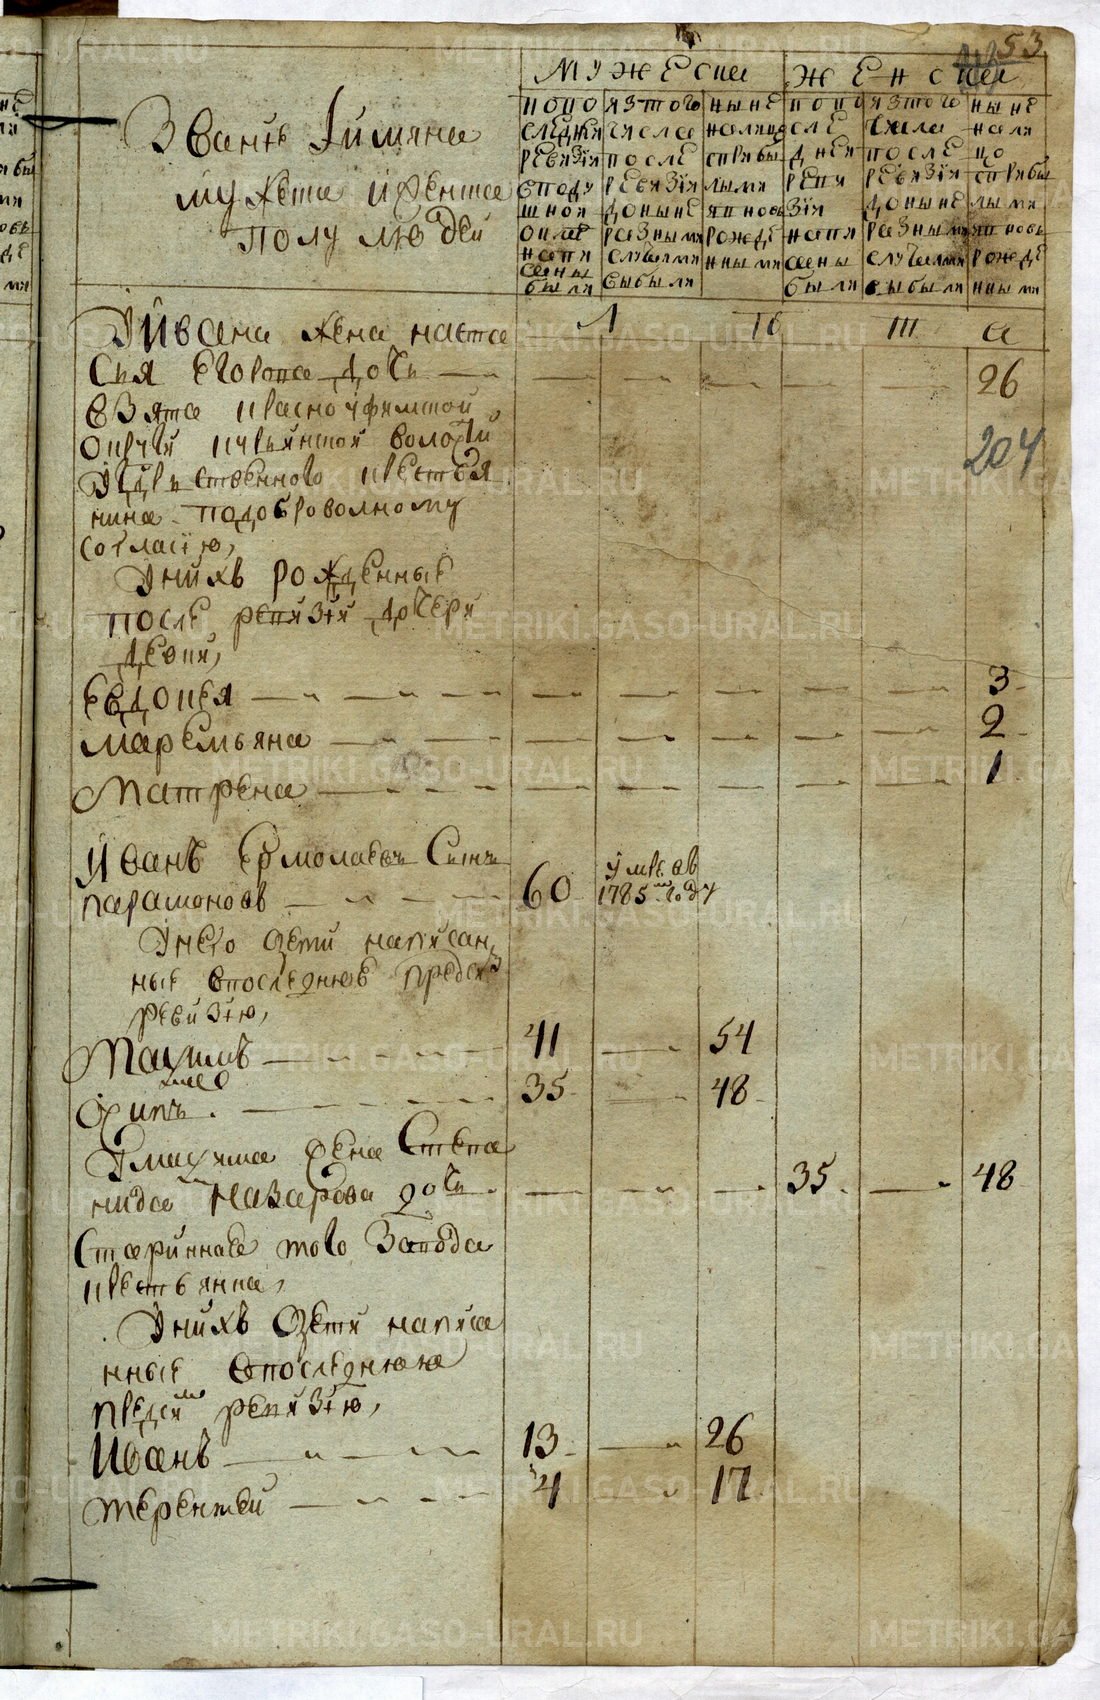 53
Званїе Їимяна
мужеска иженска
полу людей
мужеска
женска
попо следней ревизїи вподушной окладъ написаны были
изтого числа после ревизїи доныне разными случаями выбыли
ныне налицо сприбылыми ивновь рожденными
попоследней ревизїи написаны были
изтого числа после ревизїи доныне разными случаями выбыли
ныне налицо сприбылыми ивновь рожденными
Уивана жена наста
сия Егорова дочь 26
взята красноуфимской
округи волости
204
Государственного крестья
нина подобровольному
согласїю,
Унихъ рожденные
после ревизїи дочери
девки,
Евдокея 3
маремьяна 2
матрена 1
Иванъ Ермолаевъ Сынъ
парамоновъ 60 умре въ 1785м году
Унего дети написан
ные впоследнюю пред сею
ревизїю,
Максимъ 41 54
Осипъ 35 48
Умаксима жена Степа
нида Назарова дочь 35 48
Стариннаго того Завода
крестьянина,
Унихъ дети написа
нные впоследнюю
пред сим ревизїю,
Иванъ 13 26
терентей 4 17
METRIKI.GASO-URAL.RU